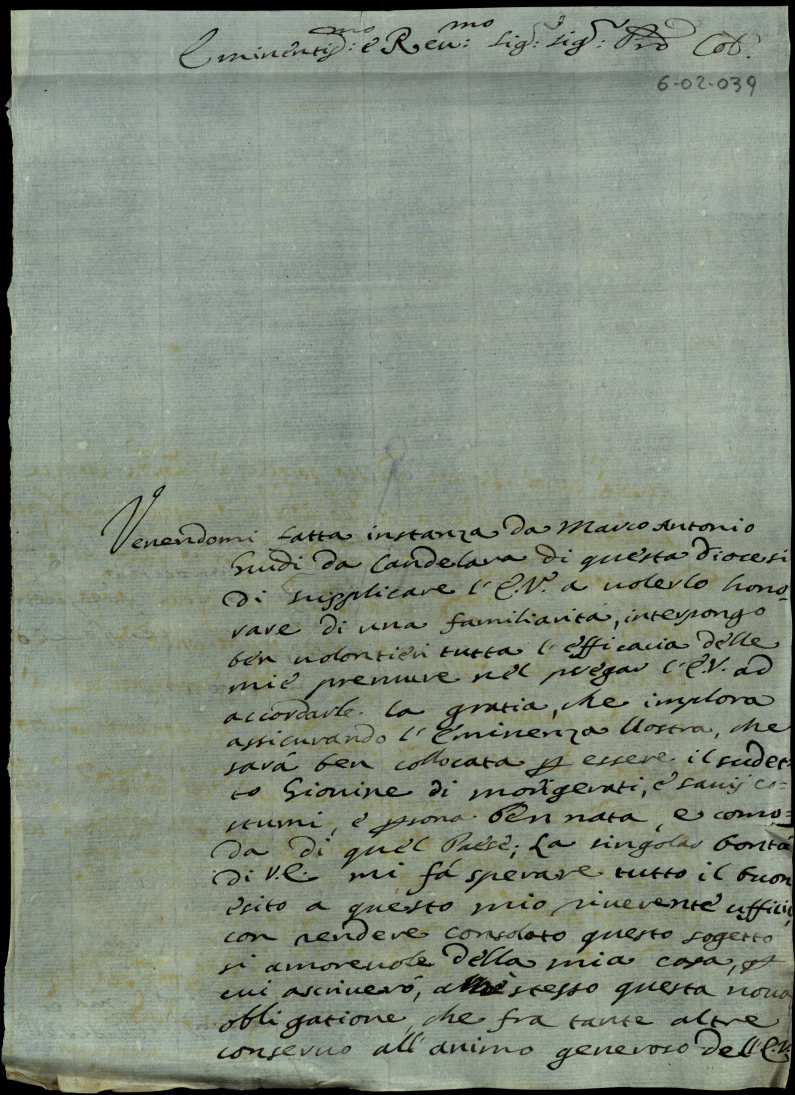 Eminentis:mo e Reu:mo Sig:r Sig:r Prõ Col:
6-02-039
Venendomi fatta instanza da Marco Antonio
Guidi da Candelara di questa Diocesi
di supplicare l'E.V. a uolerlo hono-
rare di una familiarità, interpongo
ben uolontieri tutta l'efficacia delle
mie premure nel pregar l'E.V. ad
accordarle la gratia, che implora
assicurando l'Eminenza Vostra, che
sarà ben collocata p essere il sudet-
to Giouine di morigerati, e sauij co-
stumi, e psona ben nata, e como-
da di quel Paese; La singolar bontà
di V.E. mi fà sperare tutto il buon
esito a questo mio riuerente uffitio,
con rendere consolato questo sogetto
si amoreuole della mia casa, p
cui ascriuerò, a me stesso questa noua
obligatione, che fra tante altre
conseruo all'animo generoso dell'E.V.